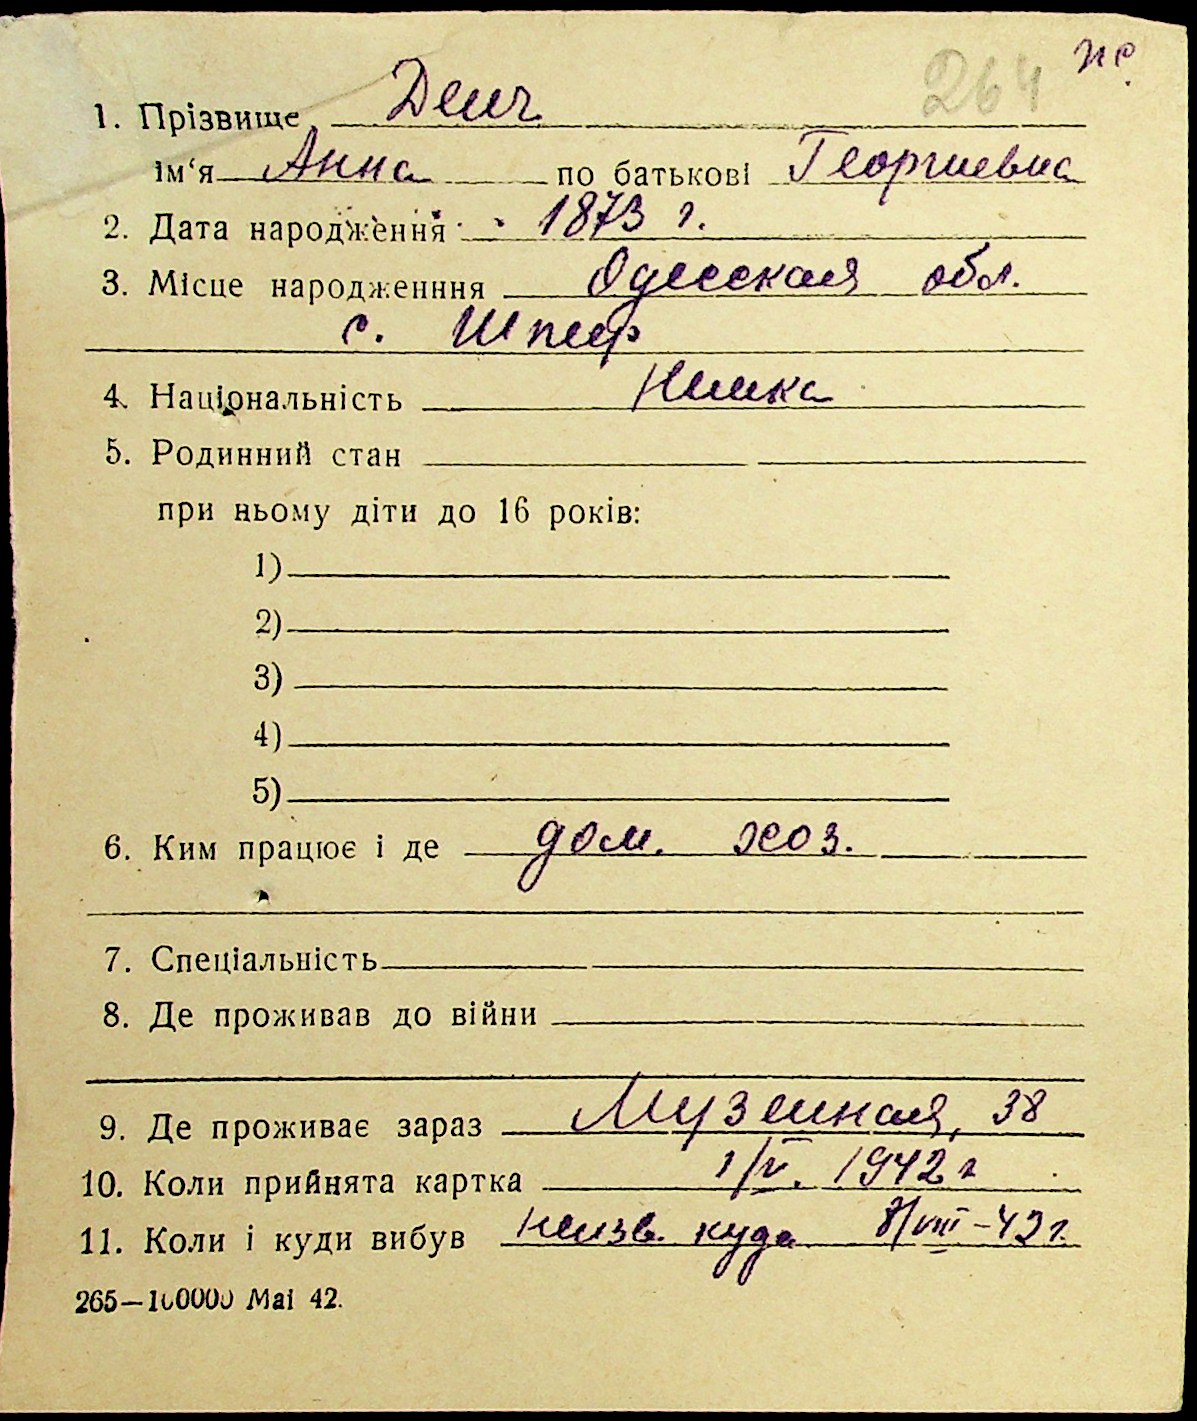 264 
1. Прізвище Дейч
ім‘я Анна по батькові Георгиевна
2. Дата народження 1873 г.
3. Місце народженння Одесская обл.
с. Шпеер
4. Національність Нимка
5. Родинний стан
при ньому діти до 16 років:
1)
2)
3)
4)
5)
6. Ким працює і де дом. хоз.
7. Спеціальність
8. Де проживав до війни
9. Де проживає зараз Музейная, 38
10. Коли прийнята картка 1/V. 1942 г
11. Коли і куди вибув неизв. куда 8/VIII-42 г.
265—100000 Mai 42.